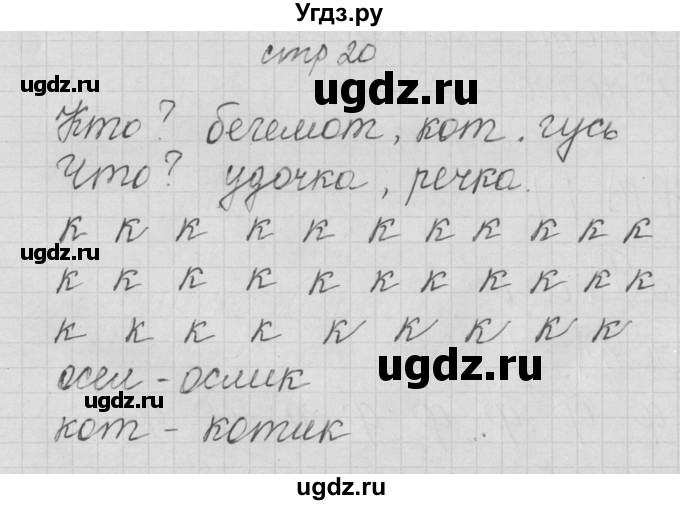 Угдз.ру
стр 20
Кто? бегемот, кот. гусь
Что? удочка, речка.
к к к к к к к к к к к
к к к к к к к к к к к
к к к к к к к к к
осел - ослик
кот - котик
ugdz.ru
ugdz.ru
ugdz.ru
ugdz.ru
ugdz.ru
ugdz.ru